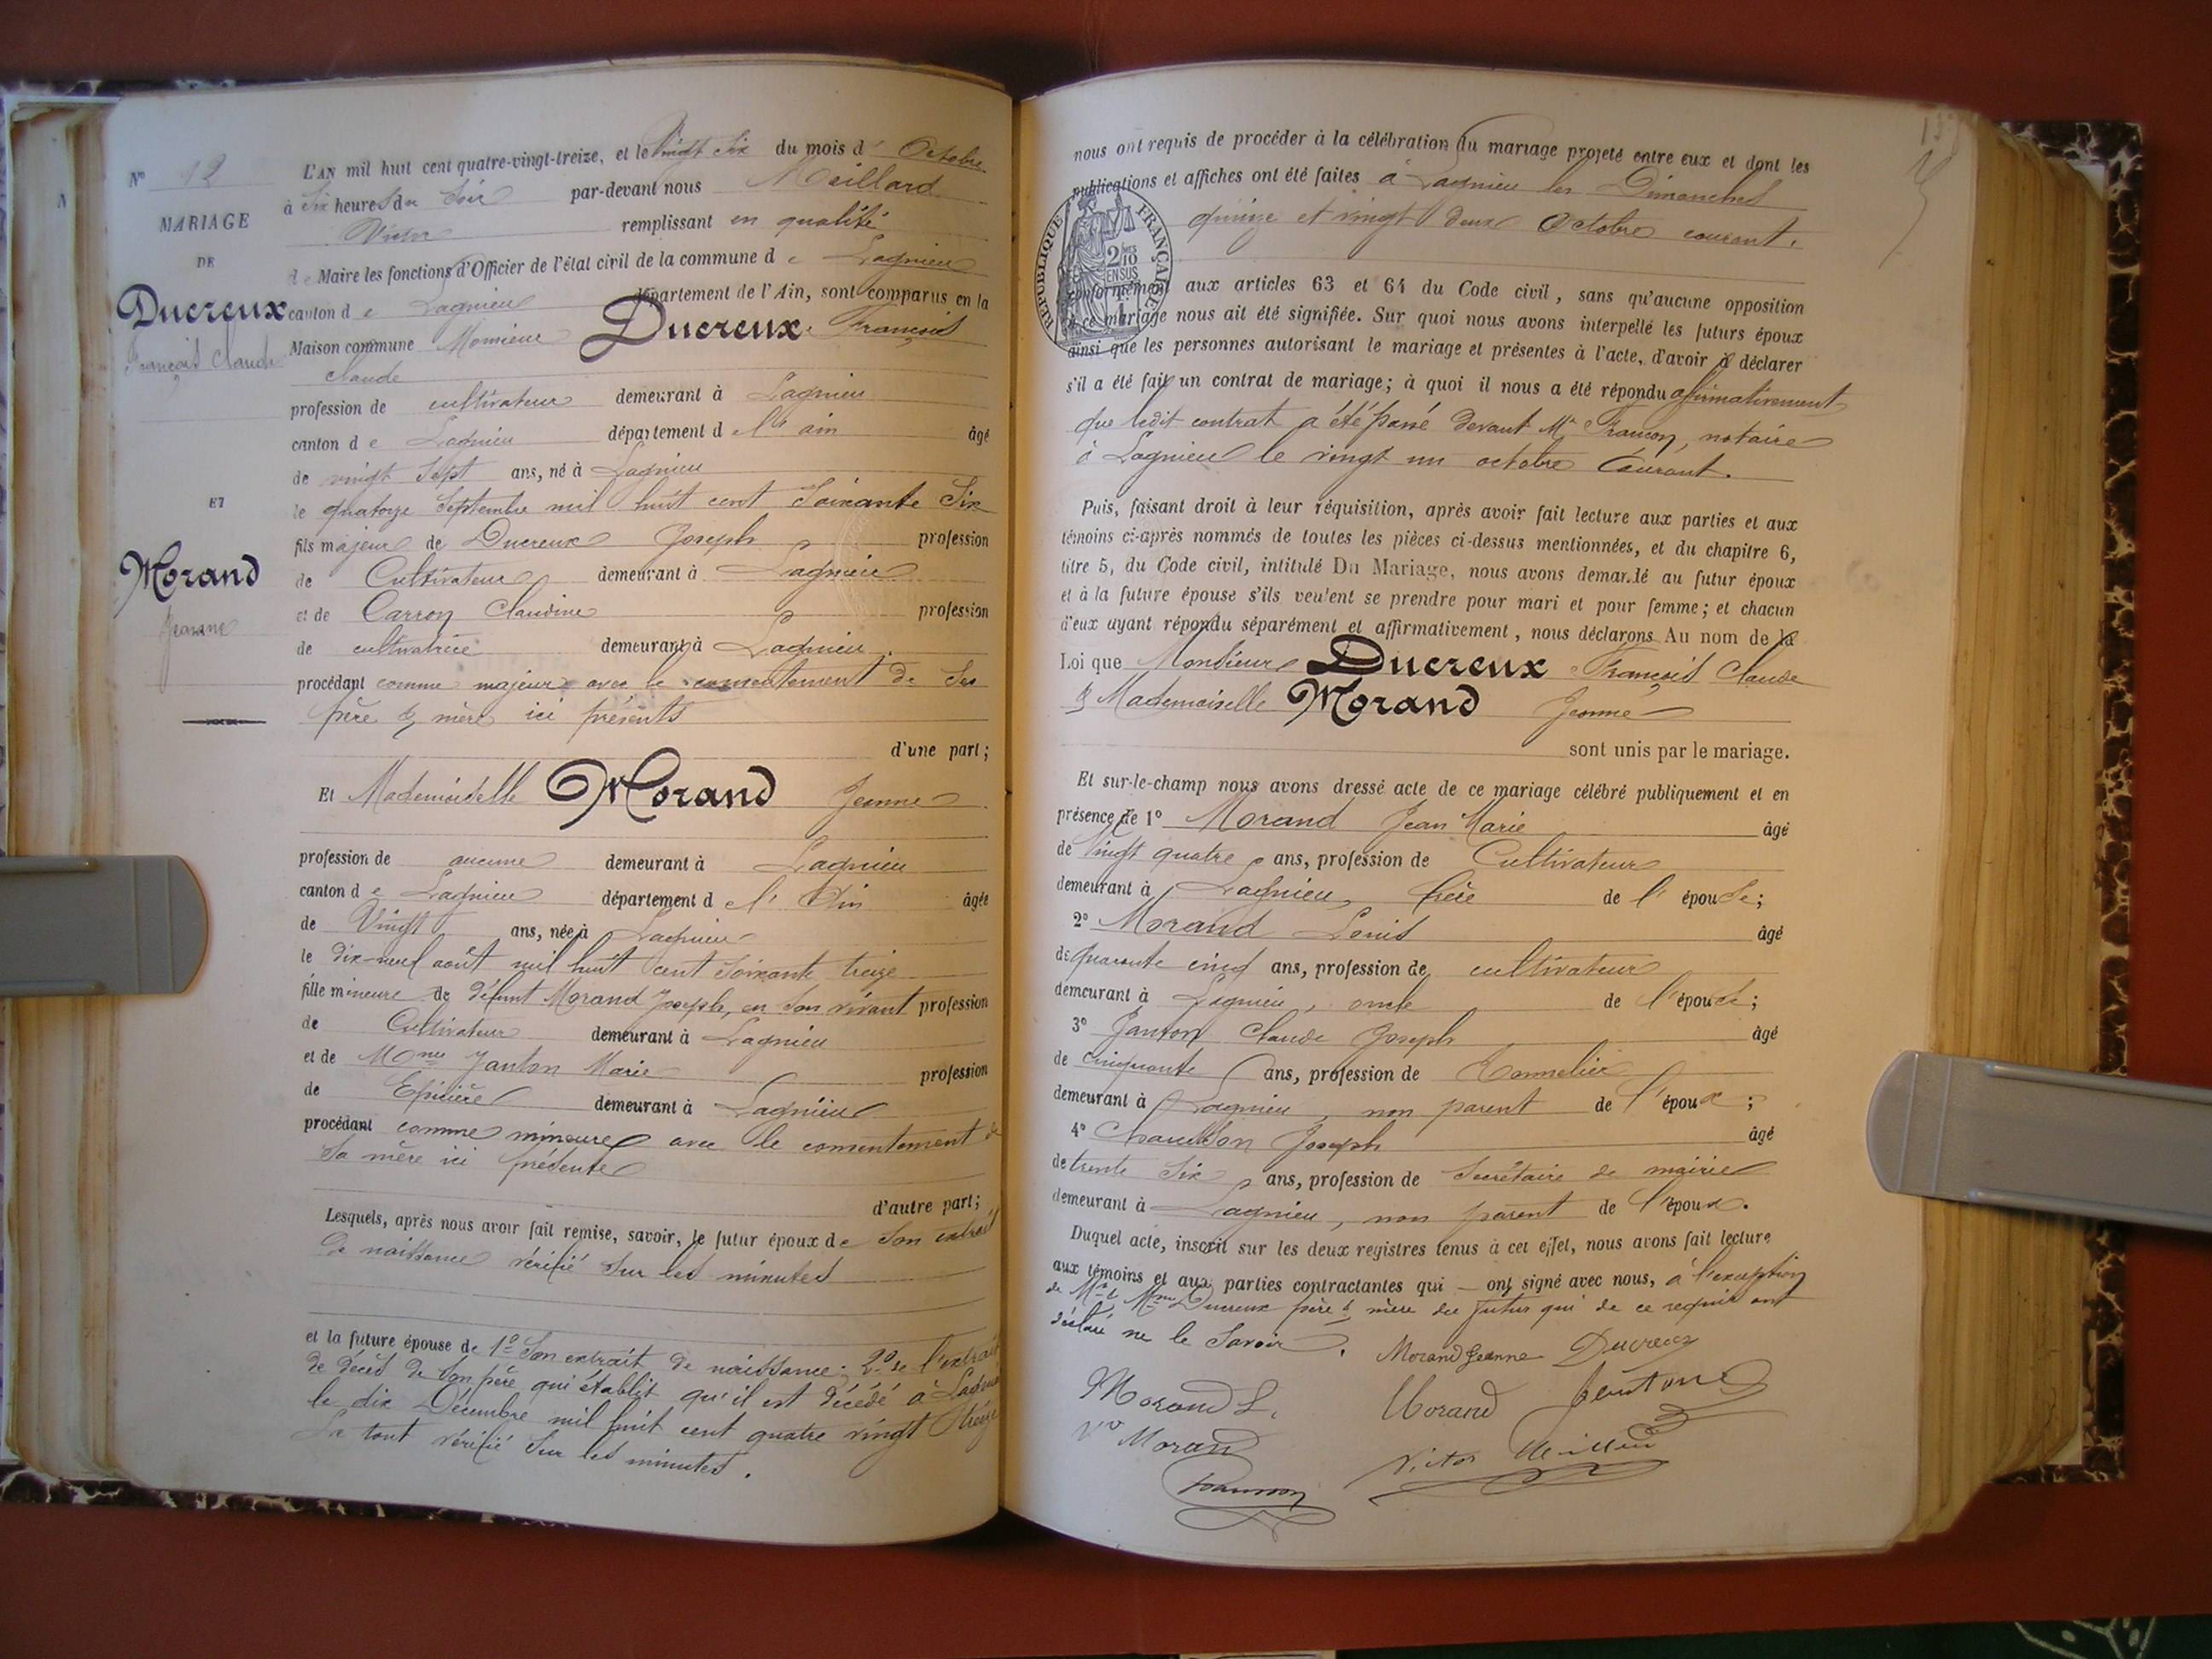 N° 12
MARIAGE
DE
Ducreux
François Claude
ET
Morand
Jeanne
L'AN mil huit cent quatre-vingt-treize, et le Vingt Six du mois d' Octobre
à Six heures du Soir par-devant nous Meillard
Victor remplissant en qualité
de Maire les fonctions d'Officier de l'état civil de la commune de Lagnieu
canton de Lagnieu département de l'Ain, sont comparus en la
Maison commune Monsieur Ducreux François
Claude
profession de cultivateur demeurant à Lagnieu
canton de Lagnieu département de l'ain âgé
de vingt Sept ans, né à Lagnieu
le quatorze Septembre mil huit cent Soixante Six
fils majeur de Ducreux Joseph profession
de Cultivateur demeurant à Lagnieu
et de Carron Claudine profession
de cultivatrice demeurant à Lagnieu
procédant comme majeur avec le consentement de Ses
père & mère ici présents
d'une part;
Et Mademoiselle Morand Jeanne
profession de aucune demeurant à Lagnieu
canton de Lagnieu département de l'Ain âgée
de Vingt ans, née à Lagnieu
le dix-neuf août mil huit cent Soixante treize
fille mineure de défunt Morand Joseph, en son vivant profession
de Cultivateur demeurant à Lagnieu
et de Mme Janton Marie profession
de Epicière demeurant à Lagnieu
procédant comme mineure avec le consentement de
Sa mère ici présente
d'autre part;
Lesquels, après nous avoir fait remise, savoir, le futur époux de Son extrait
de naissance vérifié Sur les minutes
et la future épouse de 1° Son extrait de naissance; 2° de l'extrait
de décès de Son père qui établit qu'il est décédé à Lagnieu
le dix Décembre mil huit cent quatre vingt treize
Le tout vérifié Sur les minutes.
nous ont requis de procéder à la célébration du mariage projeté entre eux et dont les
publications et affiches ont été faites à Lagnieu les Dimanches
quinze et vingt deux Octobre courant.
RÉPUBLIQUE FRANÇAISE
2/10 EN SUS
conformément aux articles 63 et 64 du Code civil, sans qu'aucune opposition
à ce mariage nous ait été signifiée. Sur quoi nous avons interpellé les futurs époux
ainsi que les personnes autorisant le mariage et présentes à l'acte, d'avoir à déclarer
s'il a été fait un contrat de mariage; à quoi il nous a été répondu affirmativement
que ledit contrat a été passé devant Me Françon, notaire
à Lagnieu le vingt un octobre Courant.
Puis, faisant droit à leur réquisition, après avoir fait lecture aux parties et aux
témoins ci-après nommés de toutes les pièces ci-dessus mentionnées, et du chapitre 6,
titre 5, du Code civil, intitulé Du Mariage, nous avons demandé au futur époux
et à la future épouse s'ils veulent se prendre pour mari et pour femme; et chacun
d'eux ayant répondu séparément et affirmativement, nous déclarons Au nom de la
Loi que Monsieur Ducreux François Claude
& Mademoiselle Morand Jeanne
sont unis par le mariage.
Et sur-le-champ nous avons dressé acte de ce mariage célébré publiquement et en
présence de 1° Morand Jean Marie âgé
de Vingt quatre ans, profession de Cultivateur
demeurant à Lagnieu, frère de l'épouse;
2° Morand Louis âgé
de quarante cinq ans, profession de cultivateur
demeurant à Lagnieu, oncle de l'épouse;
3° Janton Claude Joseph âgé
de cinquante ans, profession de Tonnelier
demeurant à Lagnieu, non parent de l'époux;
4° Joseph âgé
de trente Six ans, profession de Secrétaire de mairie
demeurant à Lagnieu, non parent de l'époux.
Duquel acte, inscrit sur les deux registres tenus à cet effet, nous avons fait lecture
aux témoins et aux parties contractantes qui – ont signé avec nous, à l'exception
de Mr & Mme Ducreux père & mère du futur qui de ce requis ont
déclaré ne le Savoir. Morand Jeanne Ducreux
Morand L. Morand Jeantone
Ve Morand
Victor Meillard